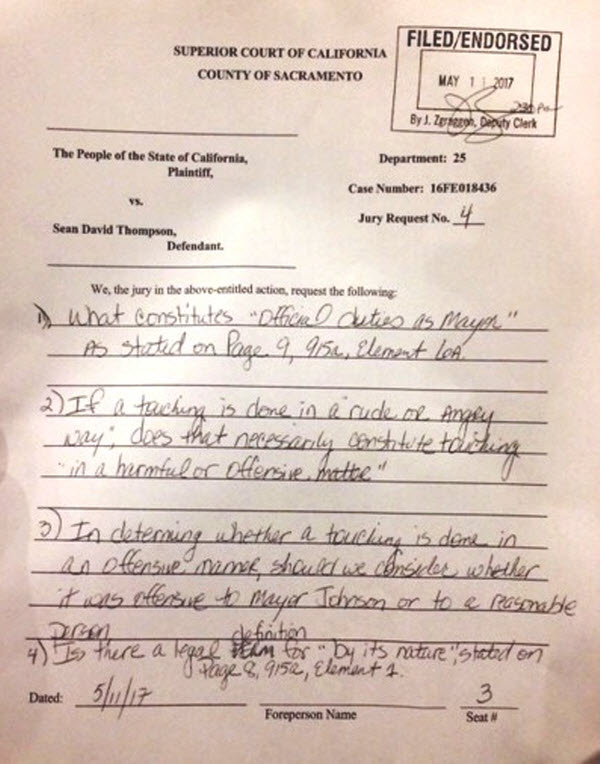 SUPERIOR COURT OF CALIFORNIA
COUNTY OF SACRAMENTO
FILED/ENDORSED
MAY 11 2017
By J. Zgraggen, Deputy Clerk
The People of the State of California,
Plaintiff,
vs.
Sean David Thompson,
Defendant.
Department: 25
Case Number: 16FE018436
Jury Request No. 4
We, the jury in the above-entitled action, request the following:
1) What constitutes "Official duties as Mayor"
As stated on Page 9, 915a, Element 6A.
2) If a touching is done in a "rude or Angry
way", does that necessarily constitute touching
"in a harmful or offensive matte"
3) In determing whether a touching is done in
an offensive manner, should we consider whether
it was offensive to Mayor Johnson or to a reasonable
person
definition
4) Is there a legal for "by its nature", stated on
Page 8, 915a, Element 1.
Dated: 5/11/17
3
Foreperson Name
Seat #